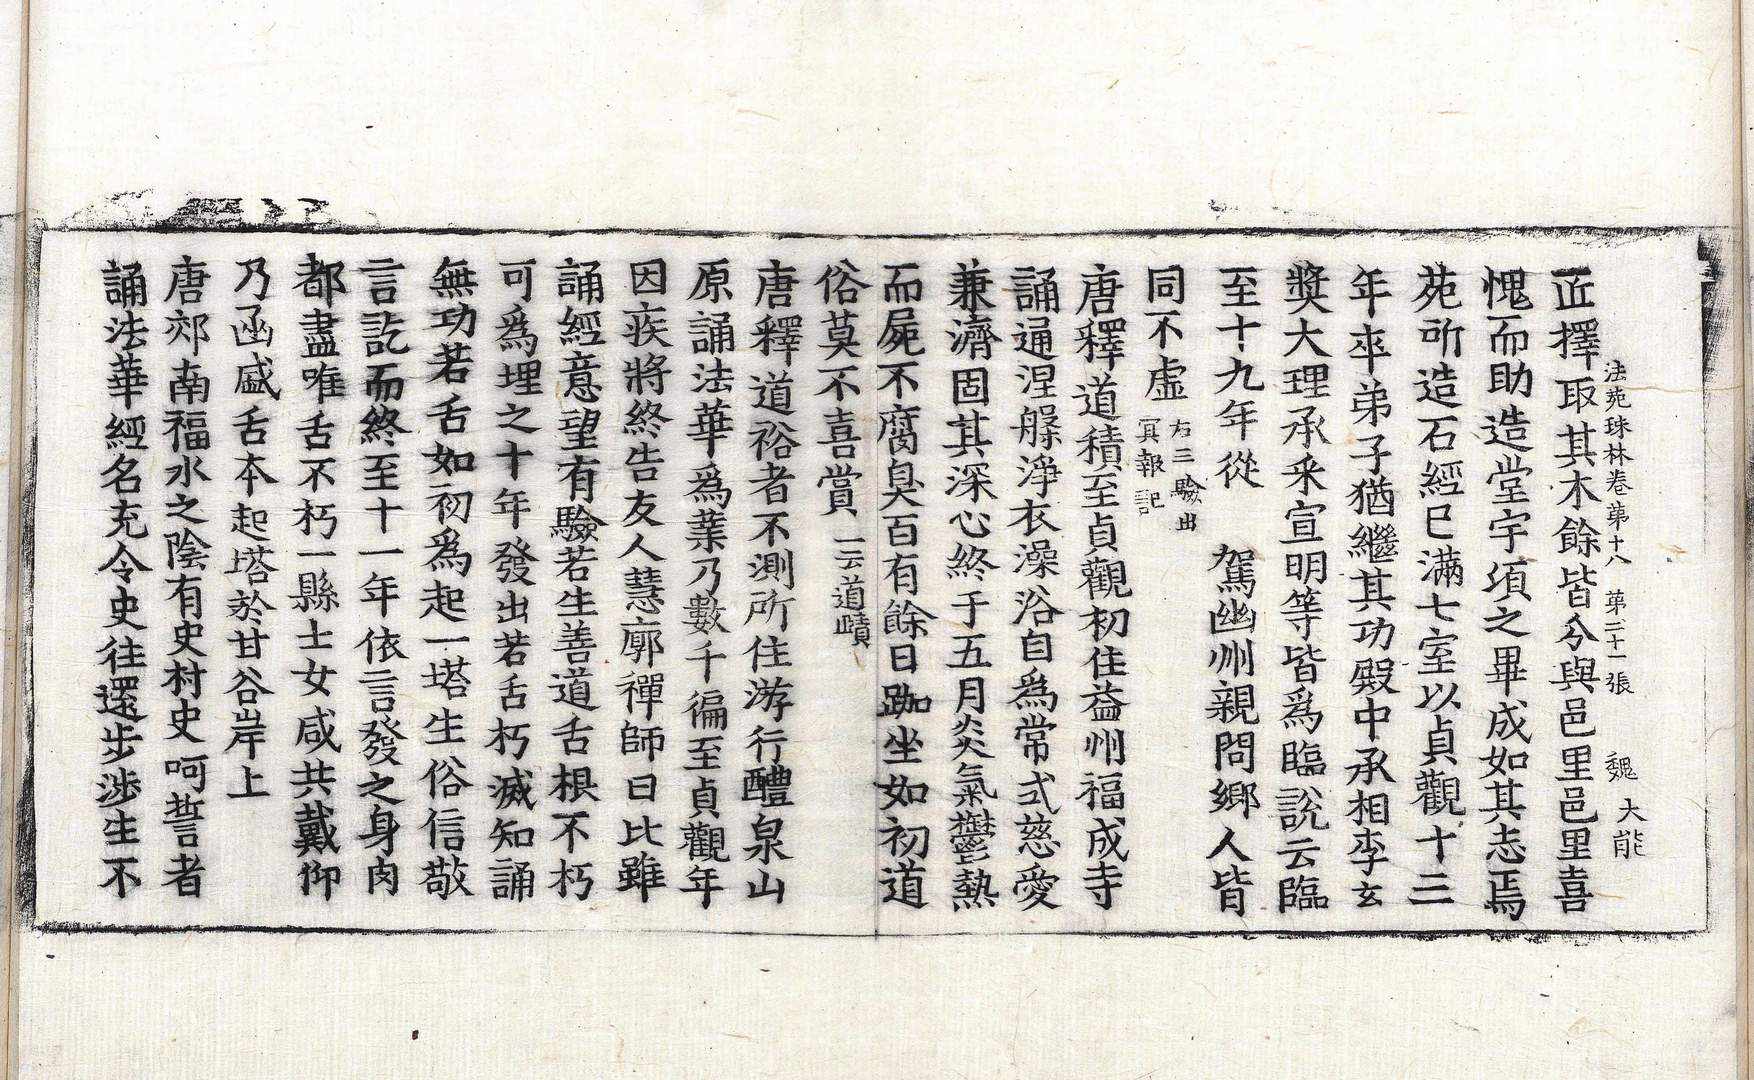 法苑珠林卷苐十八 苐三十一張 魏大能
匠擇取其木餘皆分與邑里邑里喜
愧而助造堂宇湏之畢成如其志焉
苑所造石經巳滿七室以貞觀十三
年卒弟子猶繼其功殿中承相李玄
獎大理承釆宣明等皆爲臨說云臨
至十九年從 駕幽州親問鄉人皆
同不虛 右三驗出冥報記
唐釋道積至貞觀初住益州福成寺
誦通涅槃淨衣澡浴自爲常式慈愛
兼濟固其深心終于五月炎氣鬱熱
而屍不腐臭百有餘日跏坐如初道
俗莫不喜賞 一云道賾
唐釋道裕者不測所住游行醴泉山
原誦法華爲業乃數千徧至貞觀年
因疾將終告友人慧廓禪師曰比雖
誦經意望有驗若生善道舌根不朽
可爲埋之十年發出若舌朽滅知誦
無功若舌如初爲起一塔生俗信敬
言訖而終至十一年依言發之身肉
都盡唯舌不朽一縣士女咸共戴仰
乃函盛舌本起塔於甘谷岸上
唐郊南福水之陰有史村史呵誓者
誦法華經名充令史往還步涉生不